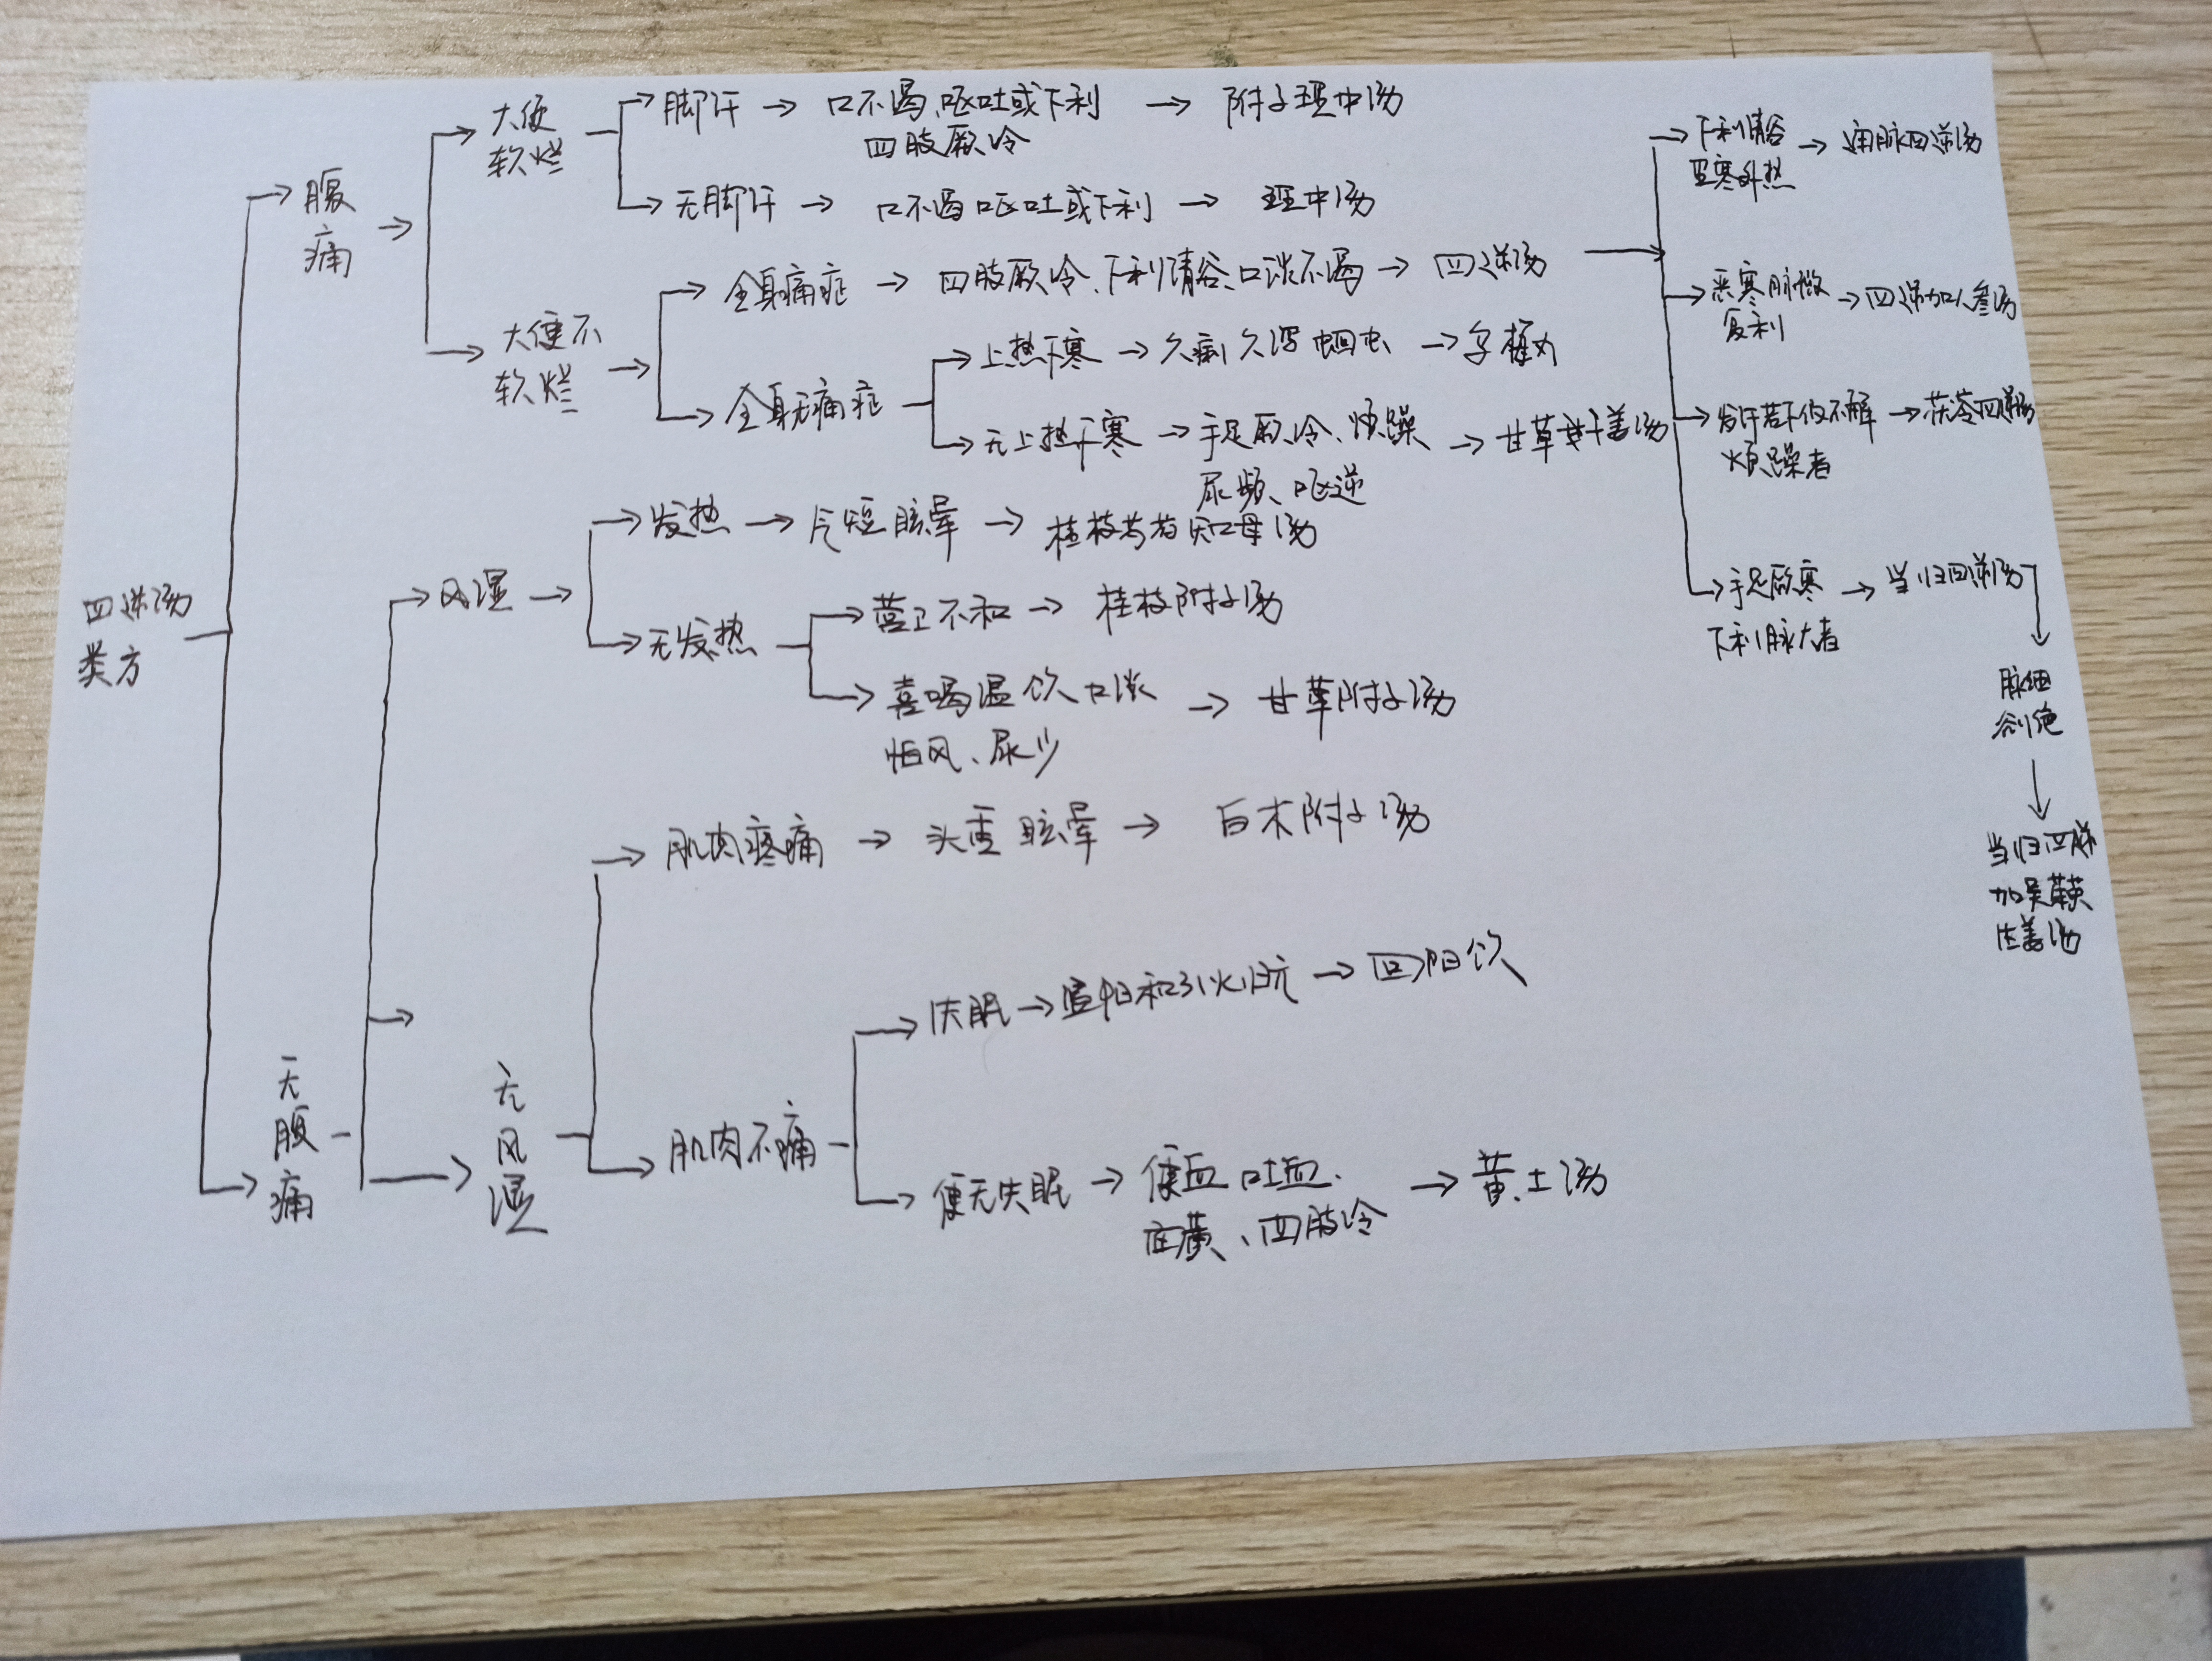 四逆汤
类方
腹
痛
大便
软烂
脚汗
口不渴、呕吐或下利
四肢厥冷
附子理中汤
无脚汗
口不渴呕吐或下利
理中汤
大便不
软烂
全身痛症
四肢厥冷、下利清谷、口淡不渴
四逆汤
下利清谷
里寒外热
通脉四逆汤
恶寒脉微
复利
四逆加人参汤
发汗若下仍不解
烦躁者
茯苓四逆汤
手足厥寒
下利脉大者
当归四逆汤
脉细
欲绝
当归四逆
加吴茱萸
生姜汤
全身无痛症
上热下寒
久痢久泻蛔虫
无上热下寒
手足厥冷、烦躁
尿频、呕逆
甘草干姜汤
无
腹
痛
风湿
发热
气短眩晕
桂枝芍药知母汤
无发热
营卫不和
桂枝附子汤
喜喝温饮口淡
怕风、尿少
甘草附子汤
无
风
湿
肌肉疼痛
头重眩晕
白术附子汤
肌肉不痛
失眠
温阳和引火归元
回阳饮
便无失眠
便血吐血、
、四肢冷
黄土汤